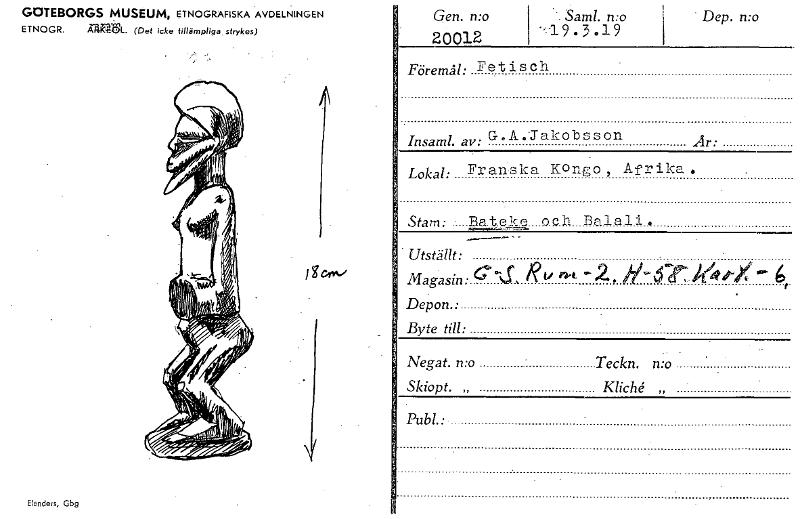 GÖTEBORGS MUSEUM, ETNOGRAFISKA AVDELNINGEN
ETNOGR. ARKEOL. (Det icke tillämpliga strykes)
18 cm
Elanders, Gbg
Gen. n:o Saml. n:o Dep. n:o
20012 19.3.19
Föremål: Fetisch
Insaml. av: G.A.Jakobsson År:
Lokal: Franska Kongo, Afrika.
Stam: Bateke och Balali.
Utställt:
Magasin: G-S. Rum-2. H-58. Kart.-6,
Depon.:
Byte till:
Negat. n:o Teckn. n:o
Skiopt. „ Kliché „
Publ.: